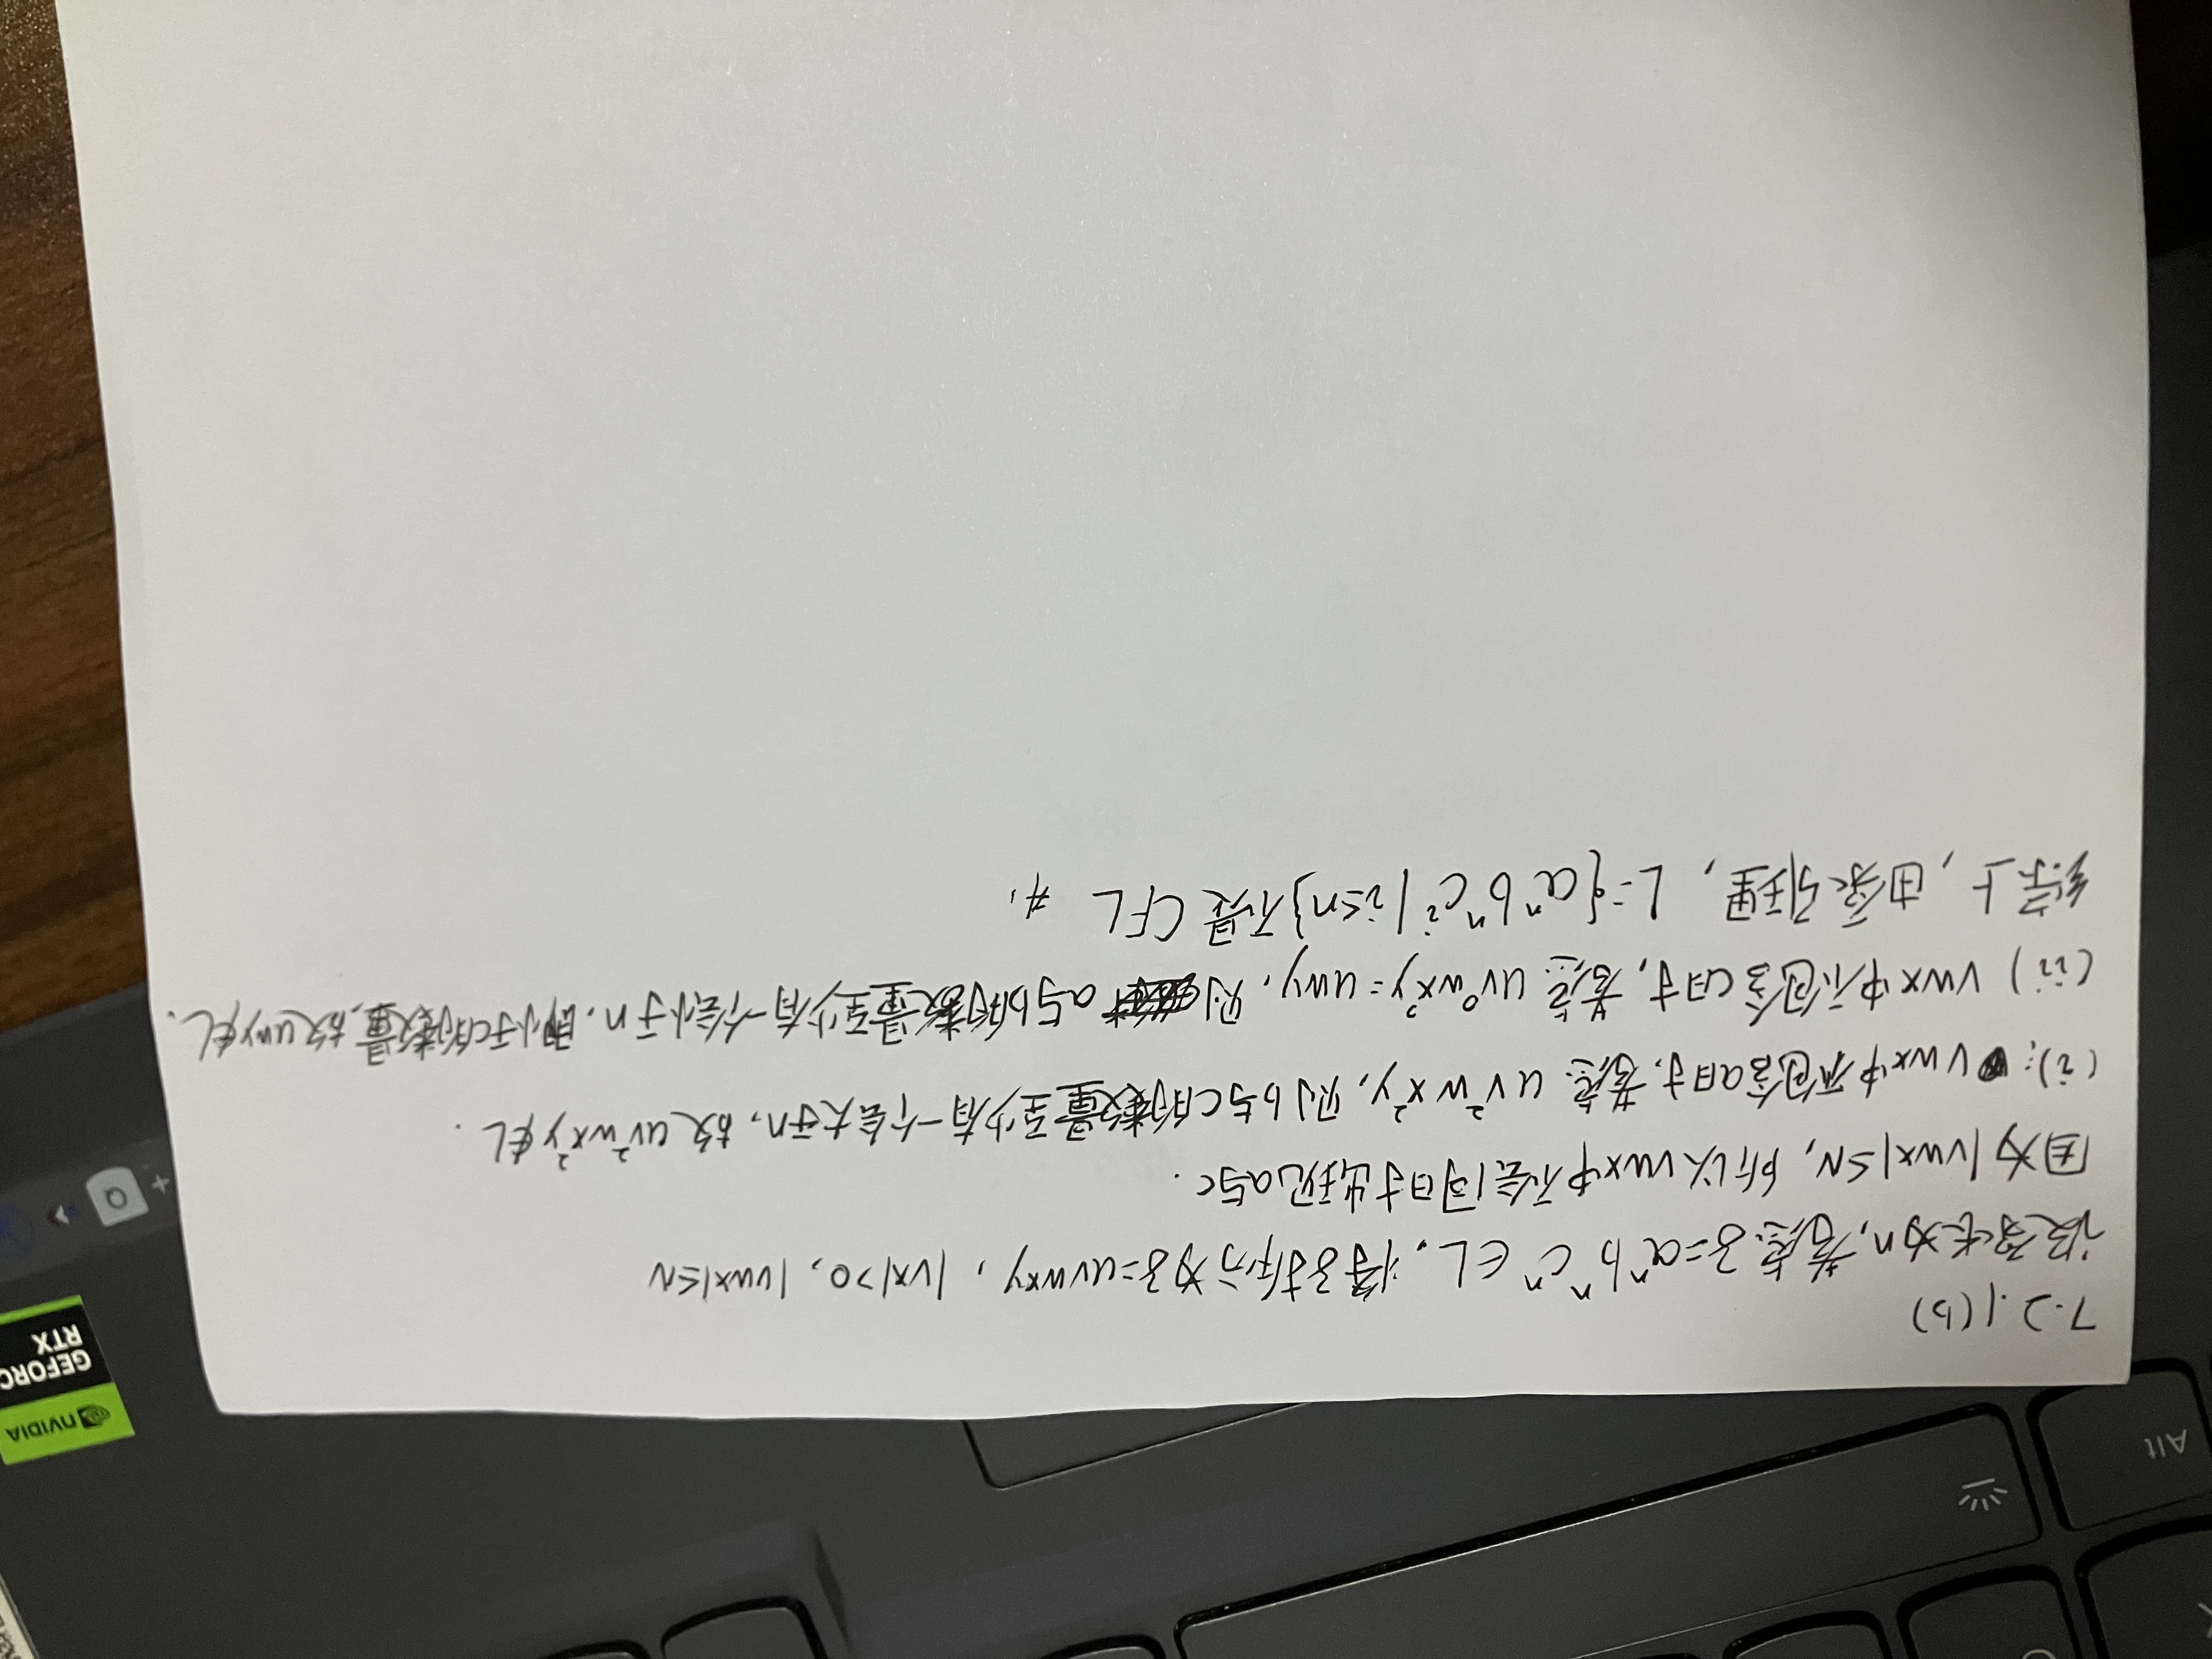 7.2.1(b)
设泵长为n,考虑z=aⁿbⁿcⁿ∈L.将z拆分为z=uvwxy,|vx|>0,|vwx|≤N
因为|vwx|≤N,所以vwx中不会同时出现a与c.
(i):vwx中不包含a时,考虑uv²wx²y,则b与c的数量至少有一个会大于n,故uv²wx²y∉L.
(ii)vwx中不包含c时,考虑uv⁰wx⁰y=uwy,则a与b的数量至少有一个会小于n,即小于c的数量,故uwy∉L.
综上,由泵引理,L={aⁿbⁿcⁱ|i≤n}不是CFL #.
NVIDIA
GEFORC
RTX
Alt